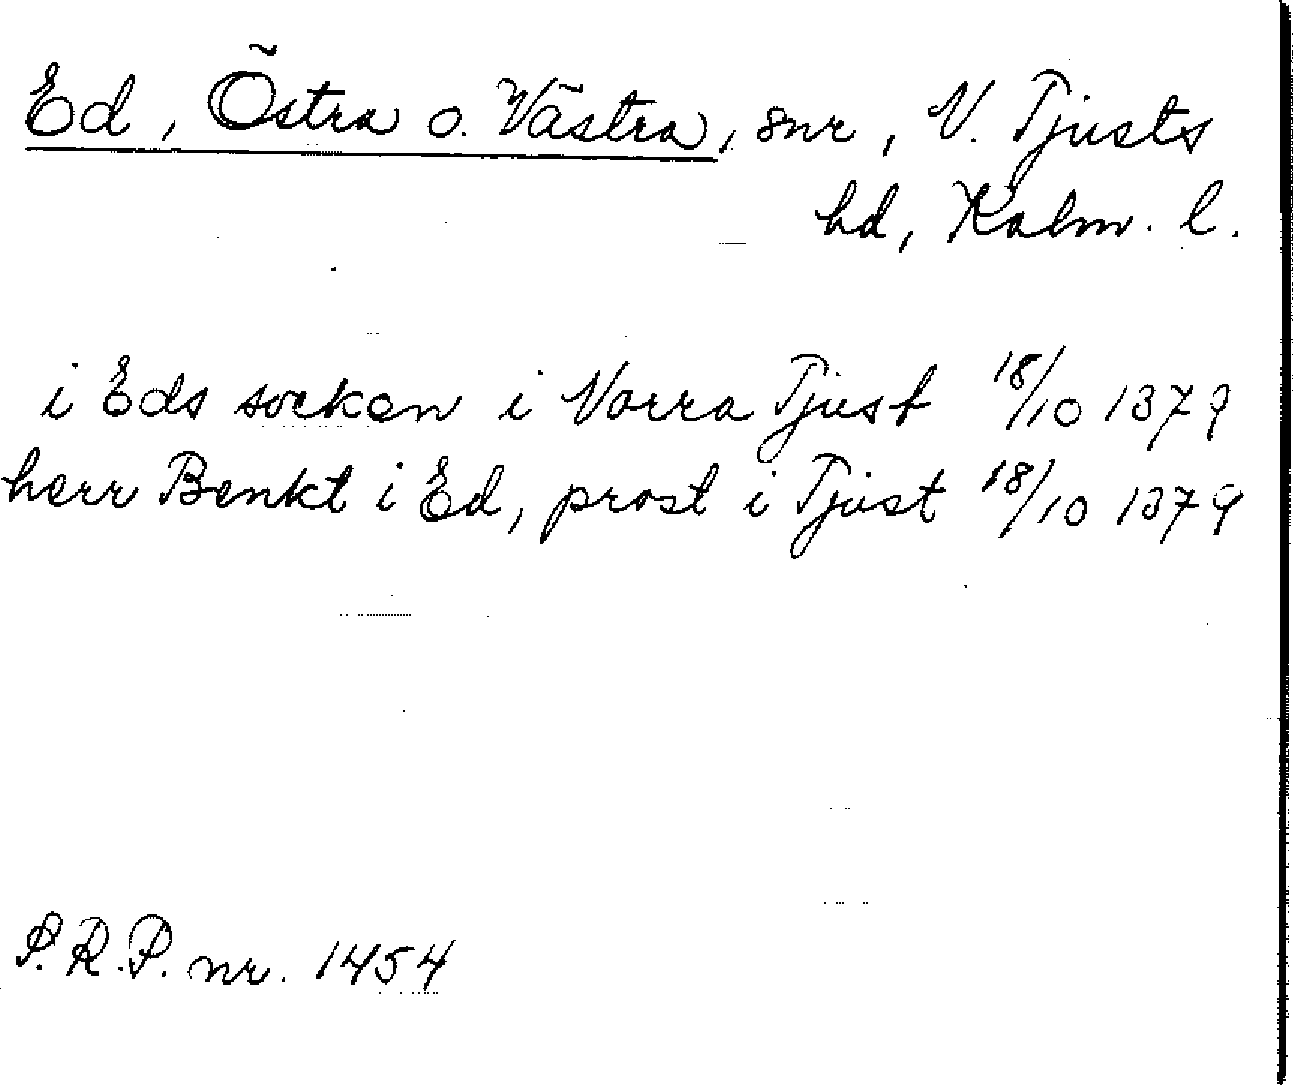 Ed, Östra o. Västra, snr, V. Tjusts
hd, Kalm. l.
i Eds socken i Norra Tjust 18/10 1379
herr Benkt i Ed, prost i Tjust 18/10 1379
S.R.P. nr. 1454